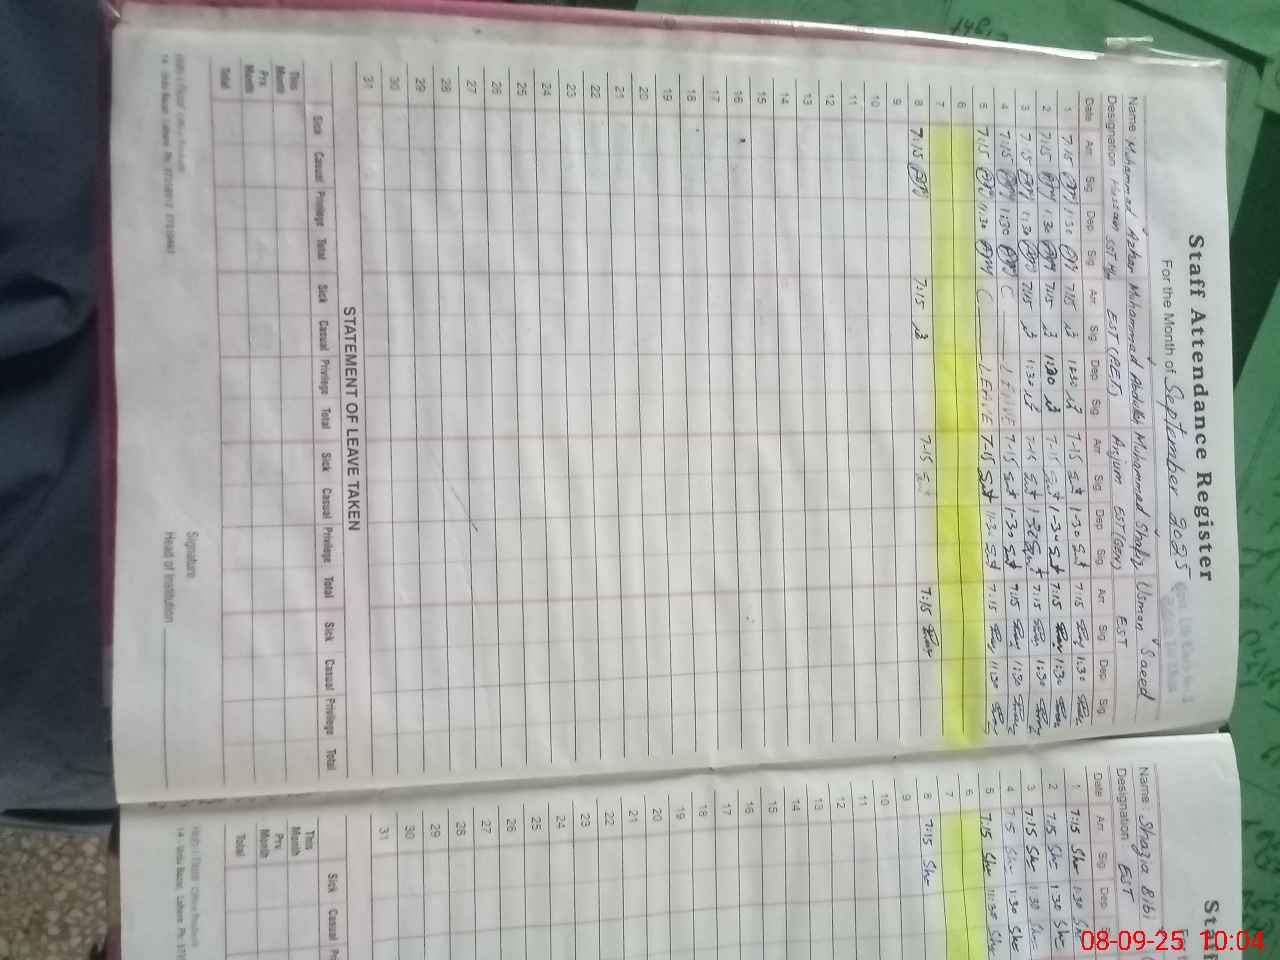 Staff Attendance Register
For the Month of September 2025
Name Muhammad Azhar Muhammad Abdullah Muhammad Shafiq Usman Saeed
Designation Hussain SST EST Anjum EST (Gen) EST
Date Arr. Sig Dep Sig Arr. Sig Dep Sig Arr. Sig Dep Sig Arr. Sig Dep Sig
1 7:15 1:30 7:15 1:30 7-15 1-30 7:15 1:30
2 7:15 1:30 7:15 1:30 7-15 1-30 7:15 1:30
3 7:15 1:30 7:15 1:30 7-15 1-30 7:15 1:30
4 7:15 1:30 C LEAVE 7-15 1-30 7:15 1:30
5 7:15 11:30 C LEAVE 7-15 11-30 7:15 11:30
6
7
8 7:15 7:15 7-15 7:15
9
10
11
12
13
14
15
16
17
18
19
20
21
22
23
24
25
26
27
28
29
30
31
STATEMENT OF LEAVE TAKEN
Sick Casual Privilege Total Sick Casual Privilege Total Sick Casual Privilege Total Sick Casual Privilege Total
This Month
Prv. Month
Total
Signature
Head of Institution
Staff
Name: Shazia Bibi
Designation EST
Date Arr. Sig Dep
1 7:15 She 1:30 She
2 7:15 She 1:30 She
3 7:15 She 1:30 She
4 7:15 She 1:30 She
5 7:15 She 11:30 She
6
7
8 7:15 She
9
10
11
12
13
14
15
16
17
18
19
20
21
22
23
24
25
26
27
28
29
30
31
Sick Casual
This Month
Prv. Month
Total
08-09-25 10:04